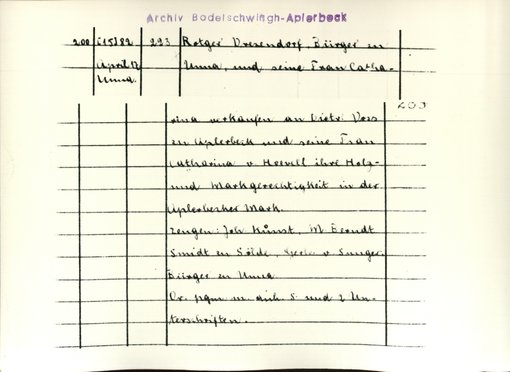 Archiv Bodelschwingh-Aplerbeck
200 [15]82 293 Rotger Vresendorf, Bürger zu
April 17 Unna, und seine Frau Catha-
Unna.
203
rina verkaufen an Dietr. Voss
zu Aplerbeck und seine Frau
Catharina v. Hoevell ihre Holz-
und Markgerechtigkeit in der
Aplerbecker Mark.
Zeugen: Joh. Kunst, M. Berndt
Smidt zu Sölde, v.
Bürger zu Unna
Or. pgm. m. anh. S. und 2 Un-
terschriften.